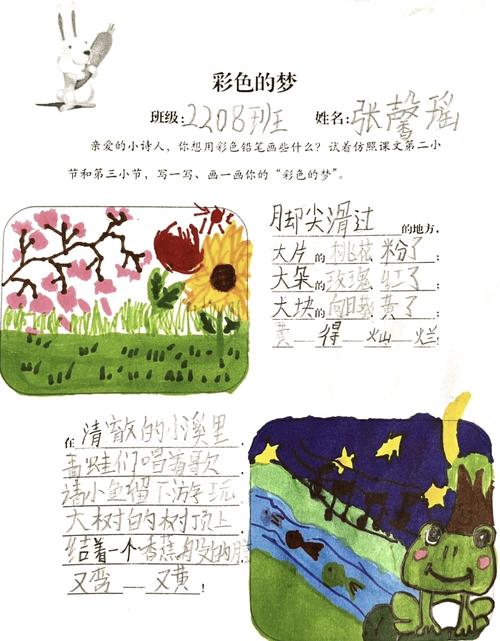 彩色的梦
班级:2208班 姓名:张馨瑶
亲爱的小诗人，你想用彩色铅笔画些什么？试着仿照课文第二小
节和第三小节，写一写、画一画你的“彩色的梦”。
脚尖滑过的地方，
大片的桃花粉了；
大朵的玫瑰红了；
大块的向日葵黄了；
黄——得——灿——烂！
在清澈的小溪里，
青蛙们唱着歌，
请小鱼留下游玩，
大树的树顶上，
结着一个香蕉般的月牙，
又弯——又黄！